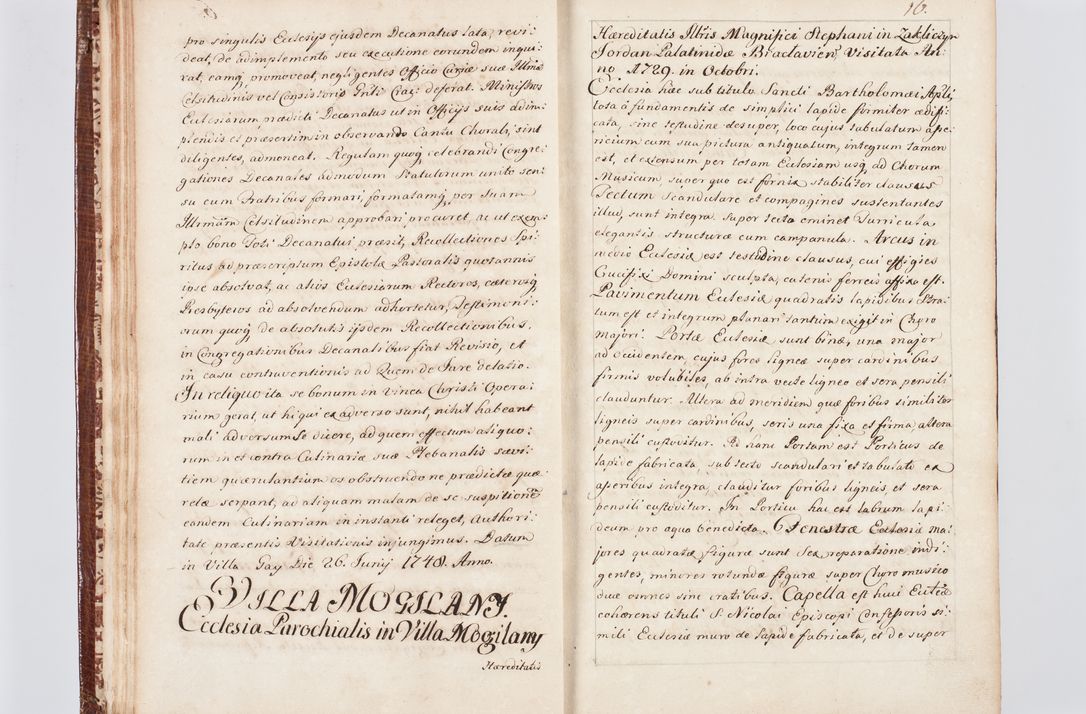 pro singulis Ecclesijs ejusdem Decanatus lata, revi:
deat, de adimplemento seu executione eorundem inqui:
rat, eamq̢ promoveat, negligentes Officio Curiæ suæ Illmæ
Celsitudinis vel Consistorio Gnli Crac: deferat. Ministros
Ecclesiarum prædicti Decanatus ut in Officijs suis adim:
plendis et præsertim in observando Cantu Chorali, sint
diligentes, admoneat. Regulam quoq̢ celebrandi Congre:
gationes Decanales admodum Statulorum unito sen:
su cum Fratribus formari, formatamq̢ per Suam
Illmam Celsitudinem approbari procuret, ac ut exem:
plo bono Toti Decanatui præsit, Recollectiones Spi:
ritus ad præscriptum Epistolæ Pastoralis quotannis
ipse absolvat, ac alios Ecclesiarum Rectores, cæterosq̢
Presbyteros ad absolvendum adhortetur, Testimoni:
orum quoq̢ de absolutis ijsdem Recollectionibus,
in Congregationibus Decanalibus fiat Revisio, et
in casu contraventionis ad Quem de Jure delatio.
In reliquo ita se bonum in Vinea Christi Opera:
rium gerat, ut hi qui ex adverso sunt, nihil habeant
mali adversum Se dicere, ad quem effectum aliquo:
rum in et contra Culinariæ suæ Plebanalis sævi:
tiem quærulantium os obstruendo ne prædictæ quæ:
relæ serpant, ad aliquam malam de se suspitionē
eandem Culinariam in instanti releget, Authori:
tate præsentis Visitationis injungimus. Datum
in Villa Gay Die 26. Junij 1748. Anno.
VILLA MOGILANY.
Ecclesia Parochialis in Villa Mogilany
Hæreditatis
16.
Hæreditatis Illris Magnifici Stephani in Zakliczyn
Jordan Palatinidæ Braclavien, Visitata An:
no 1729. in Octobri.
Ecclesia hæc sub titulo Sancti Bartholomæi Apli,
tota à fundamentis de simplici lapide formiter ædifi:
cata, sine testudine desuper, loco cujus tabulatum aspe:
ricium cum sua pictura antiquatum, integrum tamen
est, et extensum per totam Ecclesiam usq̢ ad Chorum
Musicum, super quo est fornix stabiliter clausus
Tectum Scandulare et compagines sustentantes
illud, sunt integra. Super tecto eminet Turricula
elegantis structuræ cum campanula. Arcus in
medio Ecclesiæ est testudine clausus, cui effigies
Crucifixi Domini sculpta, catenis ferreis affixa est.
Pavimentum Ecclesiæ quadratis lapidibus Stra:
tum est et integrum planari tantum exigit in Choro
majori. Portæ Ecclesiæ sunt binæ, una major
ad Occidentem, cujus fores ligneæ super cardinibus
firmis volubiles, ab intra vecte ligneo et sera pensili
clauduntur. Altera ad meridiem quæ foribus similiter
ligneis super cardinibus, seris una fixa et firma, altera
pensili custoditur. Ad hanc Portam est Porticus de
lapide fabricata, sub tecto scandulari et tabulato ex
asseribus integra, clauditur foribus ligneis, et sera
pensili custoditur. In Porticu hac est labrum lapi:
deum pro aqua benedicta. 6 Fenestræ Ecclesiæ ma:
jores quadratæ figuræ sunt Sex, reparatione indi:
gentes, minores rotundæ figuræ super Choro musico
duæ omnes sine cratibus. Capella est huic Ecclæ
cohærens tituli S. Nicolai Episcopi Confessoris si:
mili Ecclesiæ muro de lapide fabricata, et de super